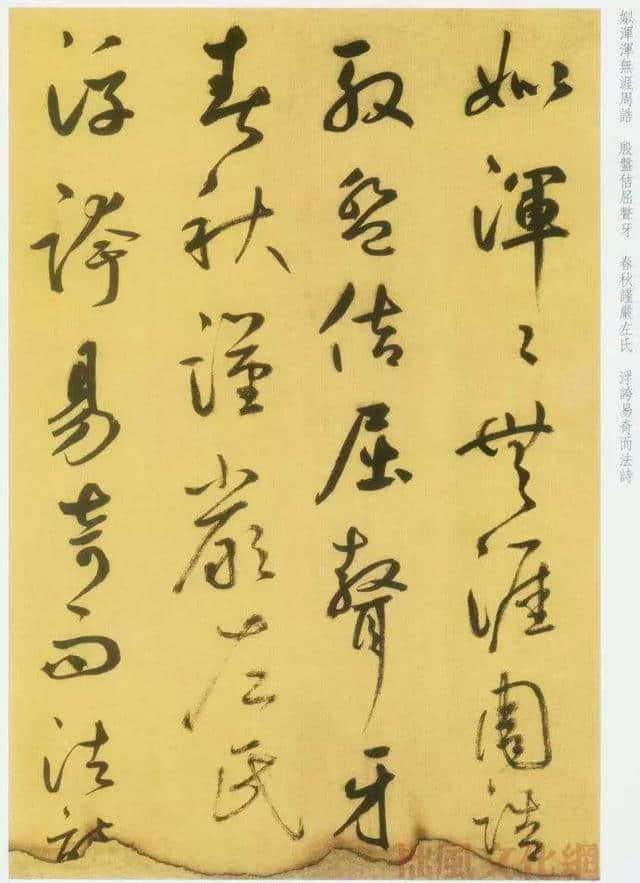 姒渾渾無涯周誥 殷盤佶屈聱牙 春秋謹嚴左氏 浮誇易奇而法詩
姒渾〻無涯周誥
殷盤佶屈聱牙
春秋謹嚴左氏
浮誇易奇而法詩
風文化網